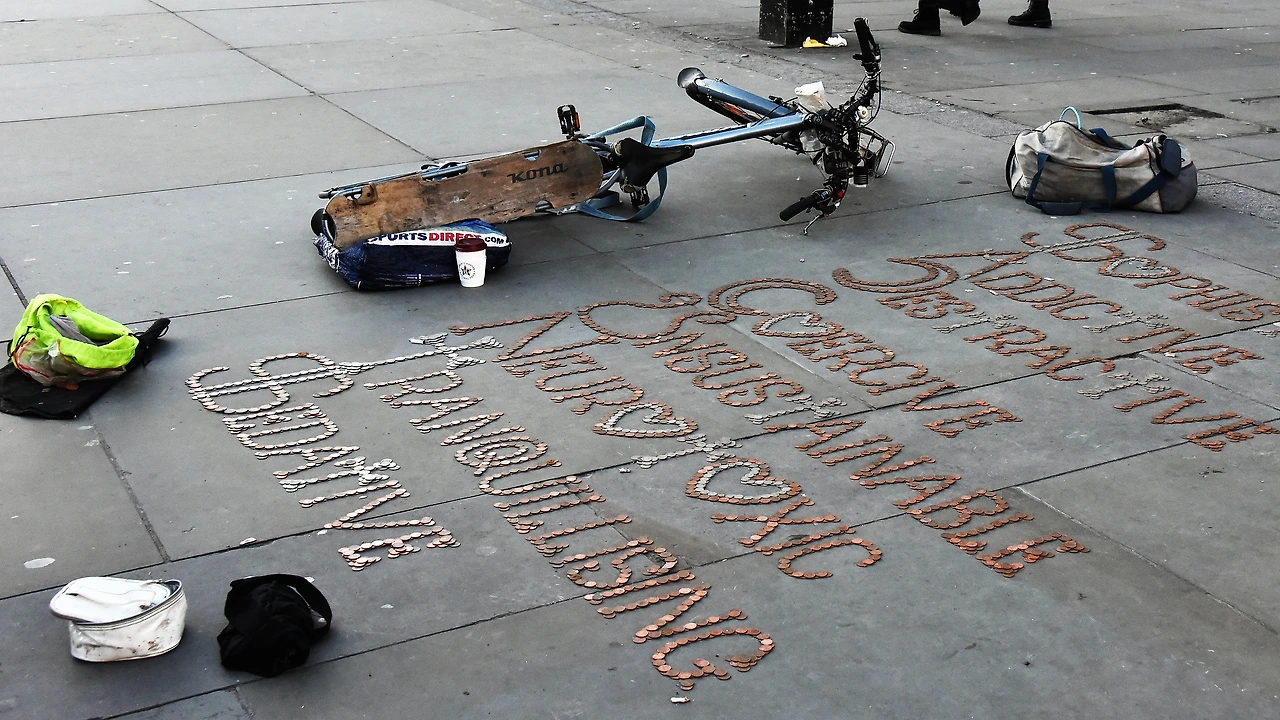 KONA
SPORTSDIRECT.COM
SOPHIS
ADDICTIVE
DISTRACTIVE
COERCIVE
UNSUSTAINABLE
NEUROTOXIC
TRANQUILLISING
SEDATIVE